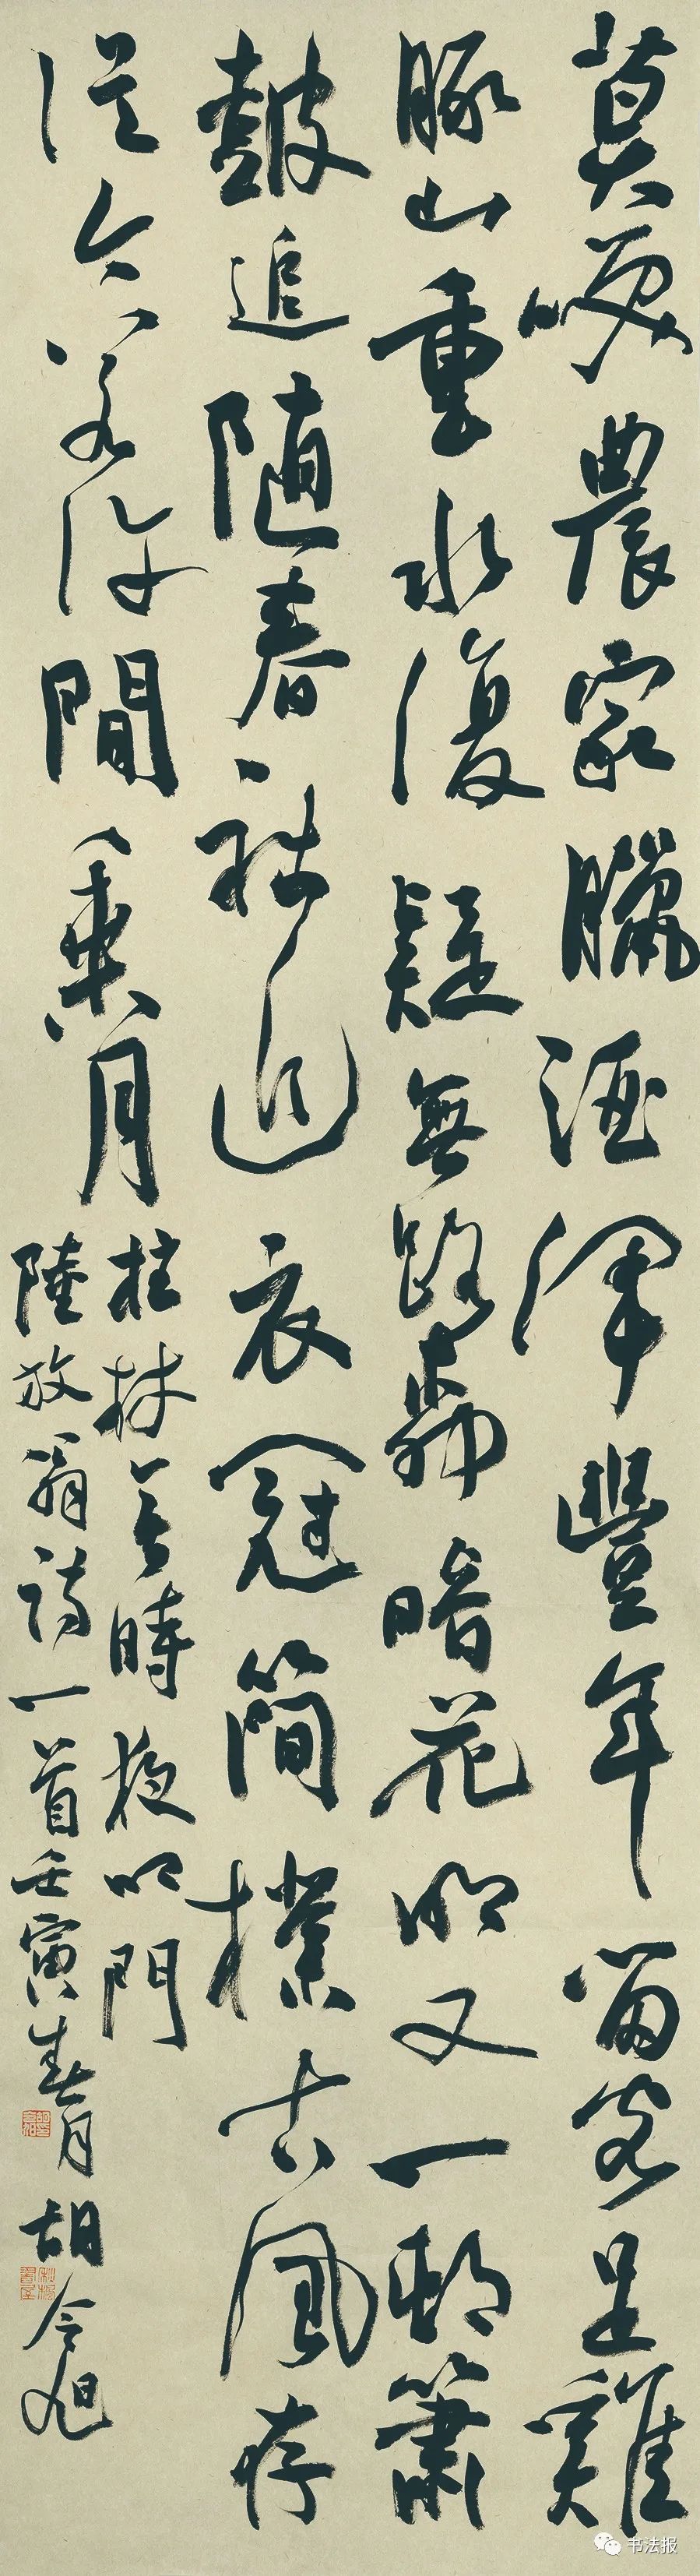 莫咲農家臘酒渾豐年留客足雞
豚山重水復疑無路柳暗花明又一邨簫
皷追随春社近衣冠簡樸古風存
從今若許閒乘月
拄杖無時夜叩門
陸放翁詩一首壬寅春月胡今旭
书法报